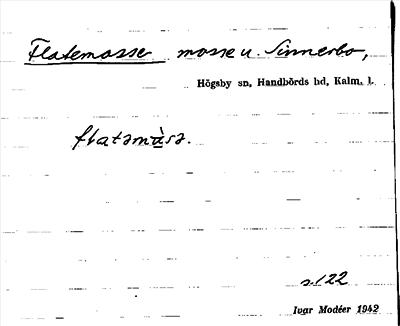 Flatemosse mosse u. Sinnerbo,
Högsby sn, Handbörds hd, Kalm. l.
flatəmùsə.
s. 122
Ivar Modéer 1942